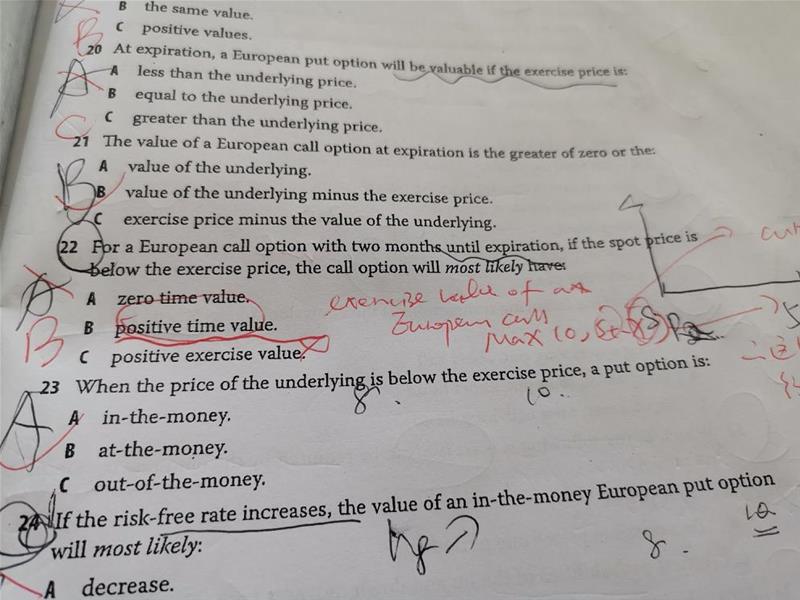 B the same value.
B C positive values.
20 At expiration, a European put option will be valuable if the exercise price is:
A A less than the underlying price.
B equal to the underlying price.
C C greater than the underlying price.
21 The value of a European call option at expiration is the greater of zero or the:
A value of the underlying.
B B value of the underlying minus the exercise price.
C exercise price minus the value of the underlying.
22 For a European call option with two months until expiration, if the spot price is
below the exercise price, the call option will most likely have:
A A zero time value.
exercise value of an
B B positive time value.
European call
Max (0, St-X)
C positive exercise value.
23 When the price of the underlying is below the exercise price, a put option is:
8 10
A A in-the-money.
B at-the-money.
C out-of-the-money.
24 If the risk-free rate increases, the value of an in-the-money European put option
will most likely:
8 10
A decrease.